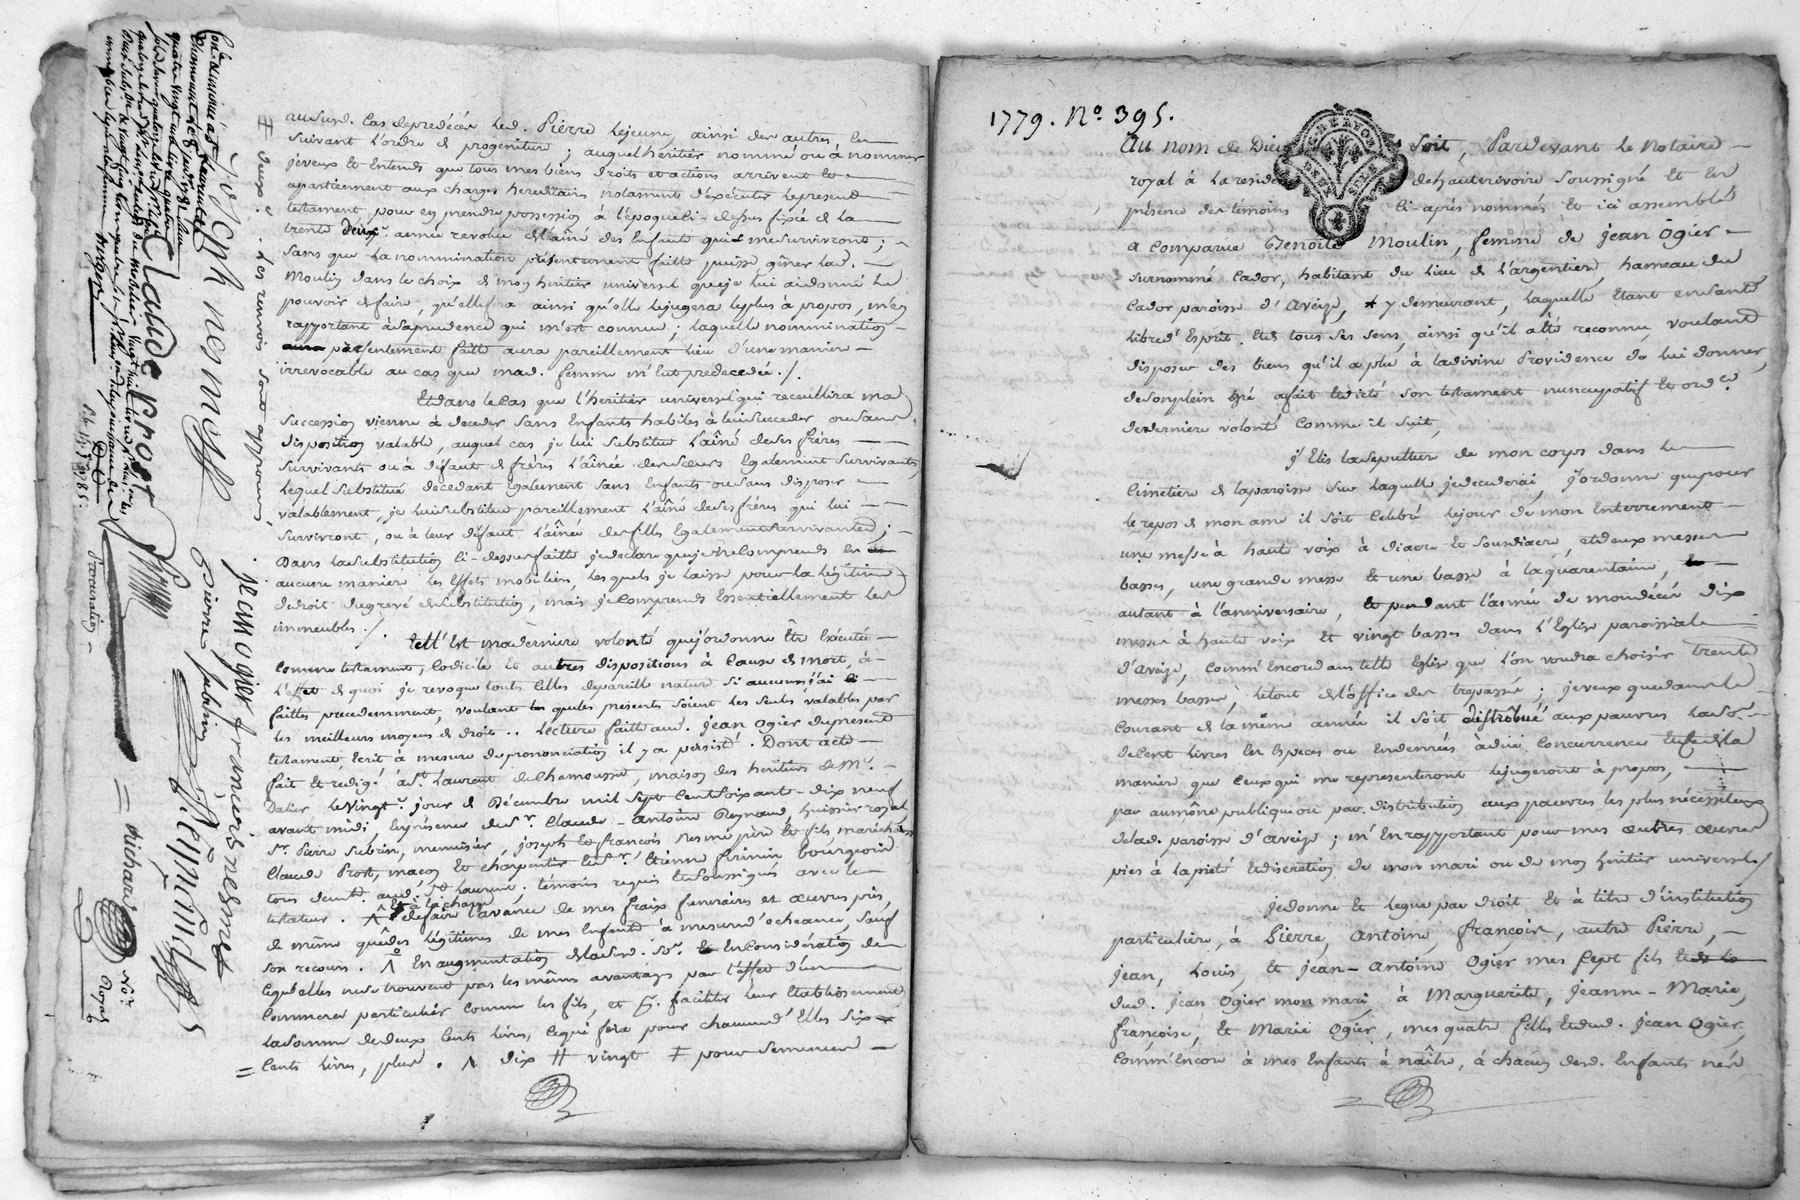 ausurd. Cas de predécés led. Pierre lejeune, ainsi des autres en
suivant l'ordre de progeniture ; auquel heritier nommé ou à nommer
je veux et Entends que tous mes biens droits et actions arrivent et
apartiennent aux charges hereditaires notament d'exécuter le present
testament, pour en prendre possession à l'époque Ci-dessus fixée de la
trente deux.e année revolue de l'aîné des Enfants qui me survivront ;
sans que la nommination présentement faitte puisse gêner lad.
Moulin dans le choix de mon héritier universel que je lui ai donné le
pouvoir de faire, qu'elle fera ainsi qu'elle le jugera le plus à propos, m'en
rapportant à sa prudence qui m'est connue ; laquelle nommination
présentement faitte aura pareillement lieu d'une maniere
irrevocable au cas que mad. femme m'eut predecedée ./.
Et dans le Cas que l'heritier universel qui recueillira ma
succession vienne à deceder sans Enfants habiles à lui succeder ou sans
disposition valable, auquel cas je lui substitue l'aîné de ses fréres
survivants ou à défaut de fréres l'aînée des sœurs Egalement survivantes,
lequel substitué décedant Egalement sans Enfants ou sans disposer
valablement, je lui substitue pareillement l'aîné de ses fréres qui lui
survivront, ou à leur défaut l'aînée des filles Egalement survivantes ;
Dans la substitution Ci-dessus faitte je declare que je ne Comprends en
aucune maniere les Effets mobiliers, les quels je laisse pour la légitime
de droit du grevé de substitution, mais je Comprends Essentiellement les
immeubles ./.
telle Est ma derniere volonté que j'ordonne être Exécutée
Comme testament, Codicile et autres dispositions à Cause de mort, à
l'effet de quoi je revoque touts Celles de pareille nature si aucunes j'ai
faittes precedemment, voulant que les présents soient les seules valables par
les meilleurs moyens de droit .. Lecture faitte aud. jean Ogier du présent
testament, Ecrit à mesure de prononciation il y a persisté. Dont acte
fait et redigé à St. Laurent de Chamousset, maison des héritiers de Me.
Dalier le Vingt.e jour de Décembre mil Sept Cent Soixante-dix neuf
avant midi, En présence de Sr. Claude-Antoine Reynaud, huissier royal
Sr. Pierre Subrin, menuisier, joseph et françois Nesme pere et fils maréchaux
Claude Prost, maçon et charpentier et Sr. Etienne Firmin bourgeois
tous demts. aud. St. Laurent. témoins requis et soussignés avec le
testateur. Λ et à la charge
de faire l'avance de mes fraix funeraires et œuvres pies,
de même que des légitimes de mes Enfants à mesure d'echeance, sauf
son recours. Λ En augmentation de lasud. So.e En Considération de
ce qu'elles ne se trouvent pas les mêmes avantages par l'effet d'un
Commerce particulier comme les fils, et pr. faciliter leur Etablissement
la somme de deux Cents livres, ce qui fera pour chacune d'Elles six
= Cents livres, plus. Λ dix # vingt ‡ pour semence
# deux.e. Les renvois sont approuvés
joseph nesme
jean ogier francois nesme
Claude prost
Pierre Subrin
Reynaud
richard No.re Royal
1779. No. 395.
Au nom de Dieu soit, Pardevant le Notaire
royal à la residence de hauterivoire soussigné et en
présence des temoins Ci-après nommés et ici assemblés
a Comparue Benoite Moulin, femme de jean Ogier
surnommé Cador, habitant du lieu de l'argentiere, hameau du
Cador paroisse d'Aveize, y demeurant, laquelle Etant en santé
libre d'Esprit et de tous ses sens, ainsi qu'il a été reconnu, voulant
disposer des biens qu'il a plu à la divine Providence de lui donner,
de son plein gré a fait et dicté son testament nuncupatif et ord.e
de derniere volonté Comme il suit,
j'Elis la sepulture de mon corps dans le
Cimetiere de la paroisse sur laquelle je decederai, j'ordonne que pour
le repos de mon ame il soit Celebré le jour de mon Enterrement
une messe à haute voix à diacre et Soudiacre, et deux messes
basses, une grande messe et une basse à la quarentaine,
autant à l'anniversaire, et pendant l'année de mon décès dix
messes à haute voix et vingt basses dans l'Eglise paroissiale
d'Aveize, Comm'Encore dans telle Eglise que l'on voudra choisir trente
messes basses, letout de l'office des trepassés ; je veux que dans le
Courant de la même année il soit distribué aux pauvres la So.e
de Cent livres En Especes ou En denrées à due Concurrence Et de la
maniere que Ceux qui me représenteront le jugeront à propos,
par aumône publique ou par distribution aux pauvres les plus nécessiteux
de lad. paroisse d'Aveize ; m'En rapportant pour mes autres œuvres
pies à la piété et discretion de mon mari ou de mon héritier universel ./
je donne et legue par droit et à titre d'institution
particuliere, à Pierre, Antoine, françois, autre Pierre,
jean, Louis, et jean-Antoine Ogier mes sept fils et
dud. jean Ogier mon mari, à Marguerite, Jeanne-Marie,
françoise, et Marie Ogier, mes quatre filles et dud. jean Ogier,
Comm'Encore à mes Enfants à naître, à chacun desd. Enfants nés